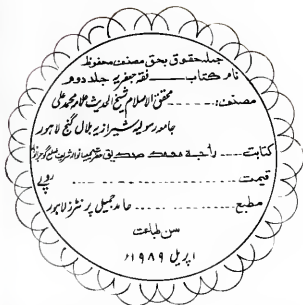 جملہ حقوق بحق مصنف محفوظ
نام کتاب ــــــ فقہ جعفریہ جلد دوم
مصنف: ـــــ محقق الاسلام شیخ الحدیث علامہ محمد علی
جامعہ رسولیہ شیرازیہ بلال گنج لاہور
کتابت ـــــ راجہ محمد صدیق
قیمت ـــــــــــــــــ روپے
مطبع ـــــ حامد جمیل پرنٹرز لاہور
سن طباعت
اپریل ۱۹۸۹ء